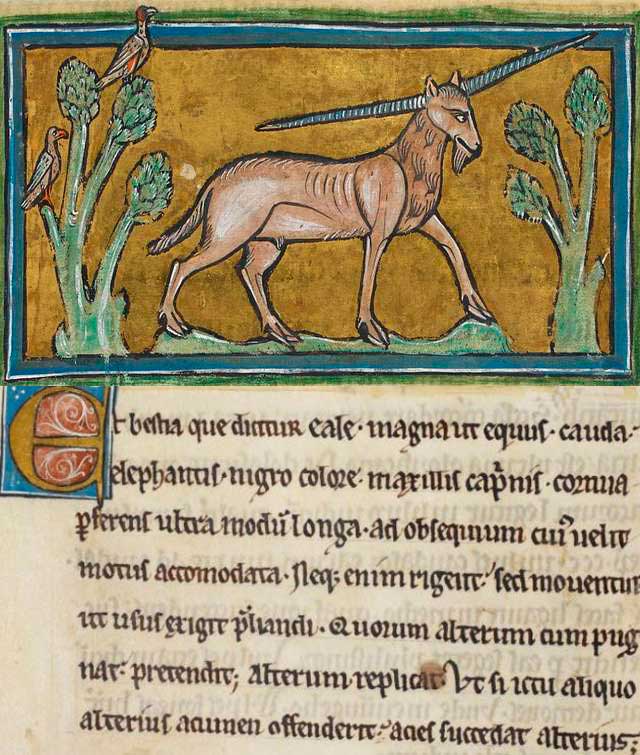 Et bestia que dicitur eale · magna ut equus · cauda ·
elephantis · nigro colore · maxillis cap̄nis · cornua
p̄ferens ultra modū longa · ad obsequium cui᷒ uelit
motus accomodata · Neq; enim rigent · sed mouentur
ut usus exigit p̄liandi · Quorum alterum cum pug
nat · pretendit; Alterum replicat Vt si ictu aliquo
alterius acumen offenderit · acies succedat alterius ·